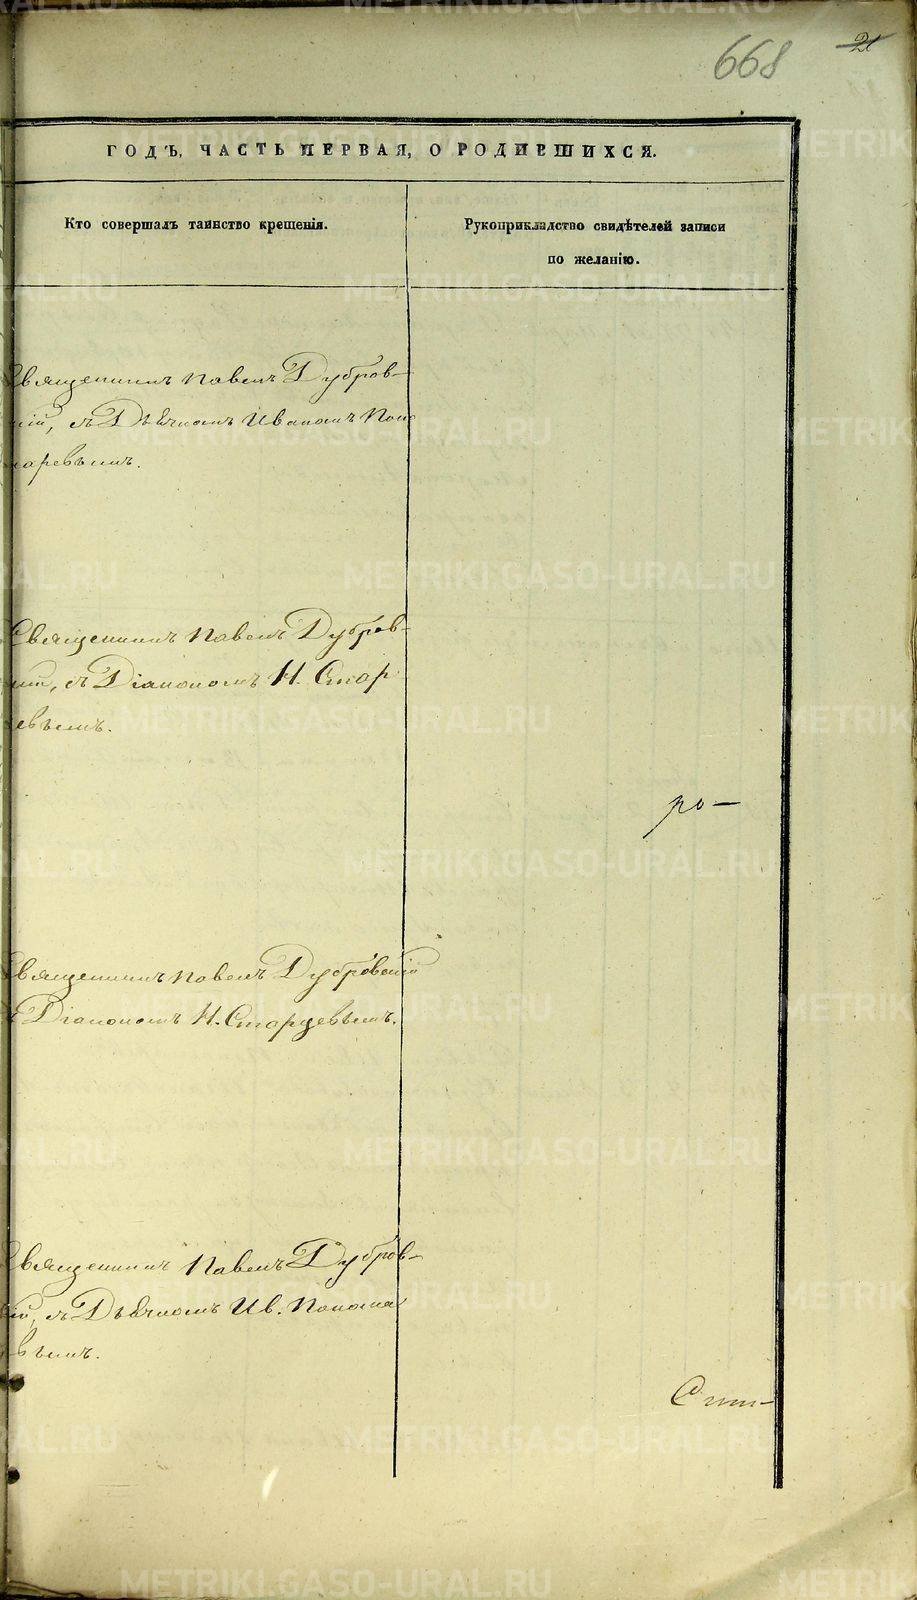 668
21
ГОДЪ, ЧАСТЬ ПЕРВАЯ, О РОДИВШИХСЯ.
Кто совершалъ таинство крещенія.
Рукоприкладство свидѣтелей записи
по желанію.
Священникъ Павелъ Дубров-
кій, съ Дьячкомъ Иваномъ Поно
маревымъ.
Священникъ Павелъ Дубров-
кій, съ Діакономъ Н. Стар
цевымъ.
ро-
Священникъ Павелъ Дубровскій
съ Діакономъ Н. Старцевымъ.
Священникъ Павелъ Дубров-
кій, съ Дьячкомъ Ив. Понома
ревымъ.
METRIKI.GASO-URAL.RU